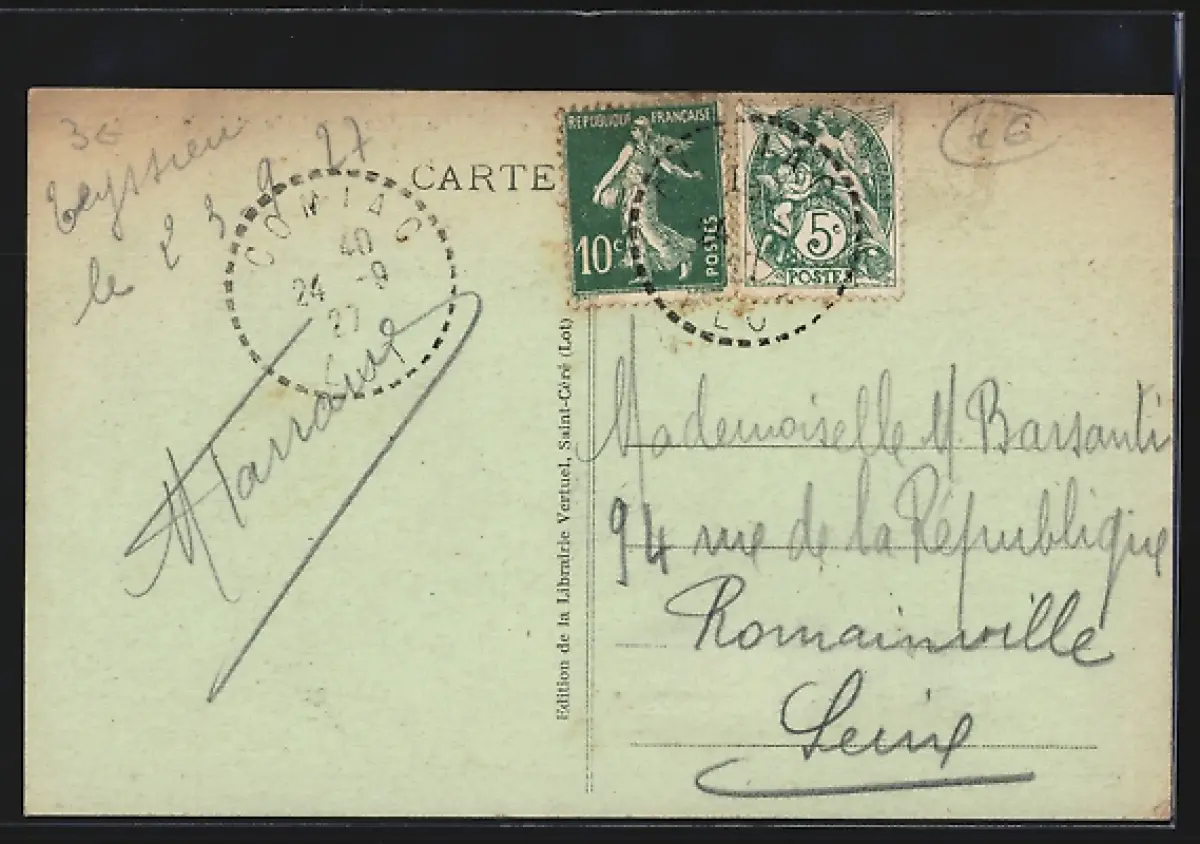 3€
Teyssieu
le 23 9 27
CARTE
COMIAC
40
24 -9
27
REPUBLIQUE FRANÇAISE
10c
POSTES
5c
POSTES
LO
4€
Edition de la Librairie Vertuel, Saint-Céré (Lot)
Mademoiselle M. Barsanti
94 rue de la République
Romainville
Seine